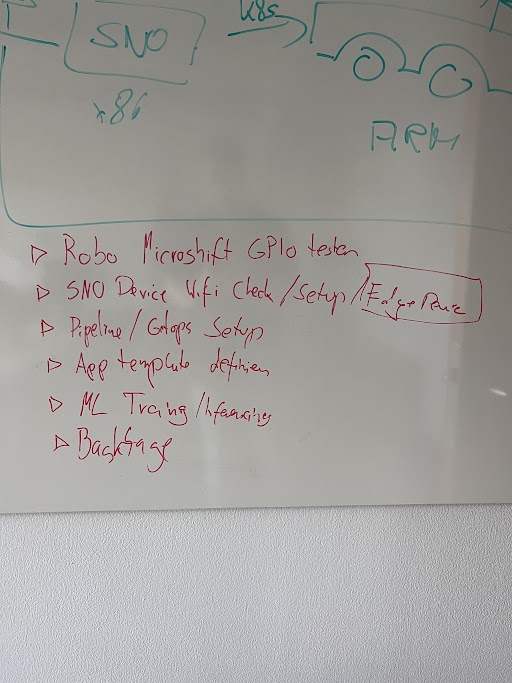 K8s
SNO
x86
ARM
▷ Robo Microshift GPIO testen
▷ SNO Device Wifi Check / Setup /
▷ Pipeline / Gitops Setup
▷ App template definieren
▷ ML Traing / Inferencing
▷ Backstage